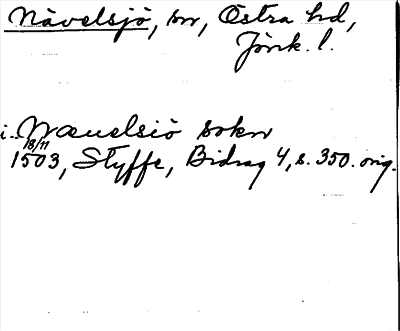 Nävelsjö, sn, Östra hd,
Jönk. l.
i Næuelsiö sokn
18/11
1503, Styffe, Bidrag 4, s. 350. orig.